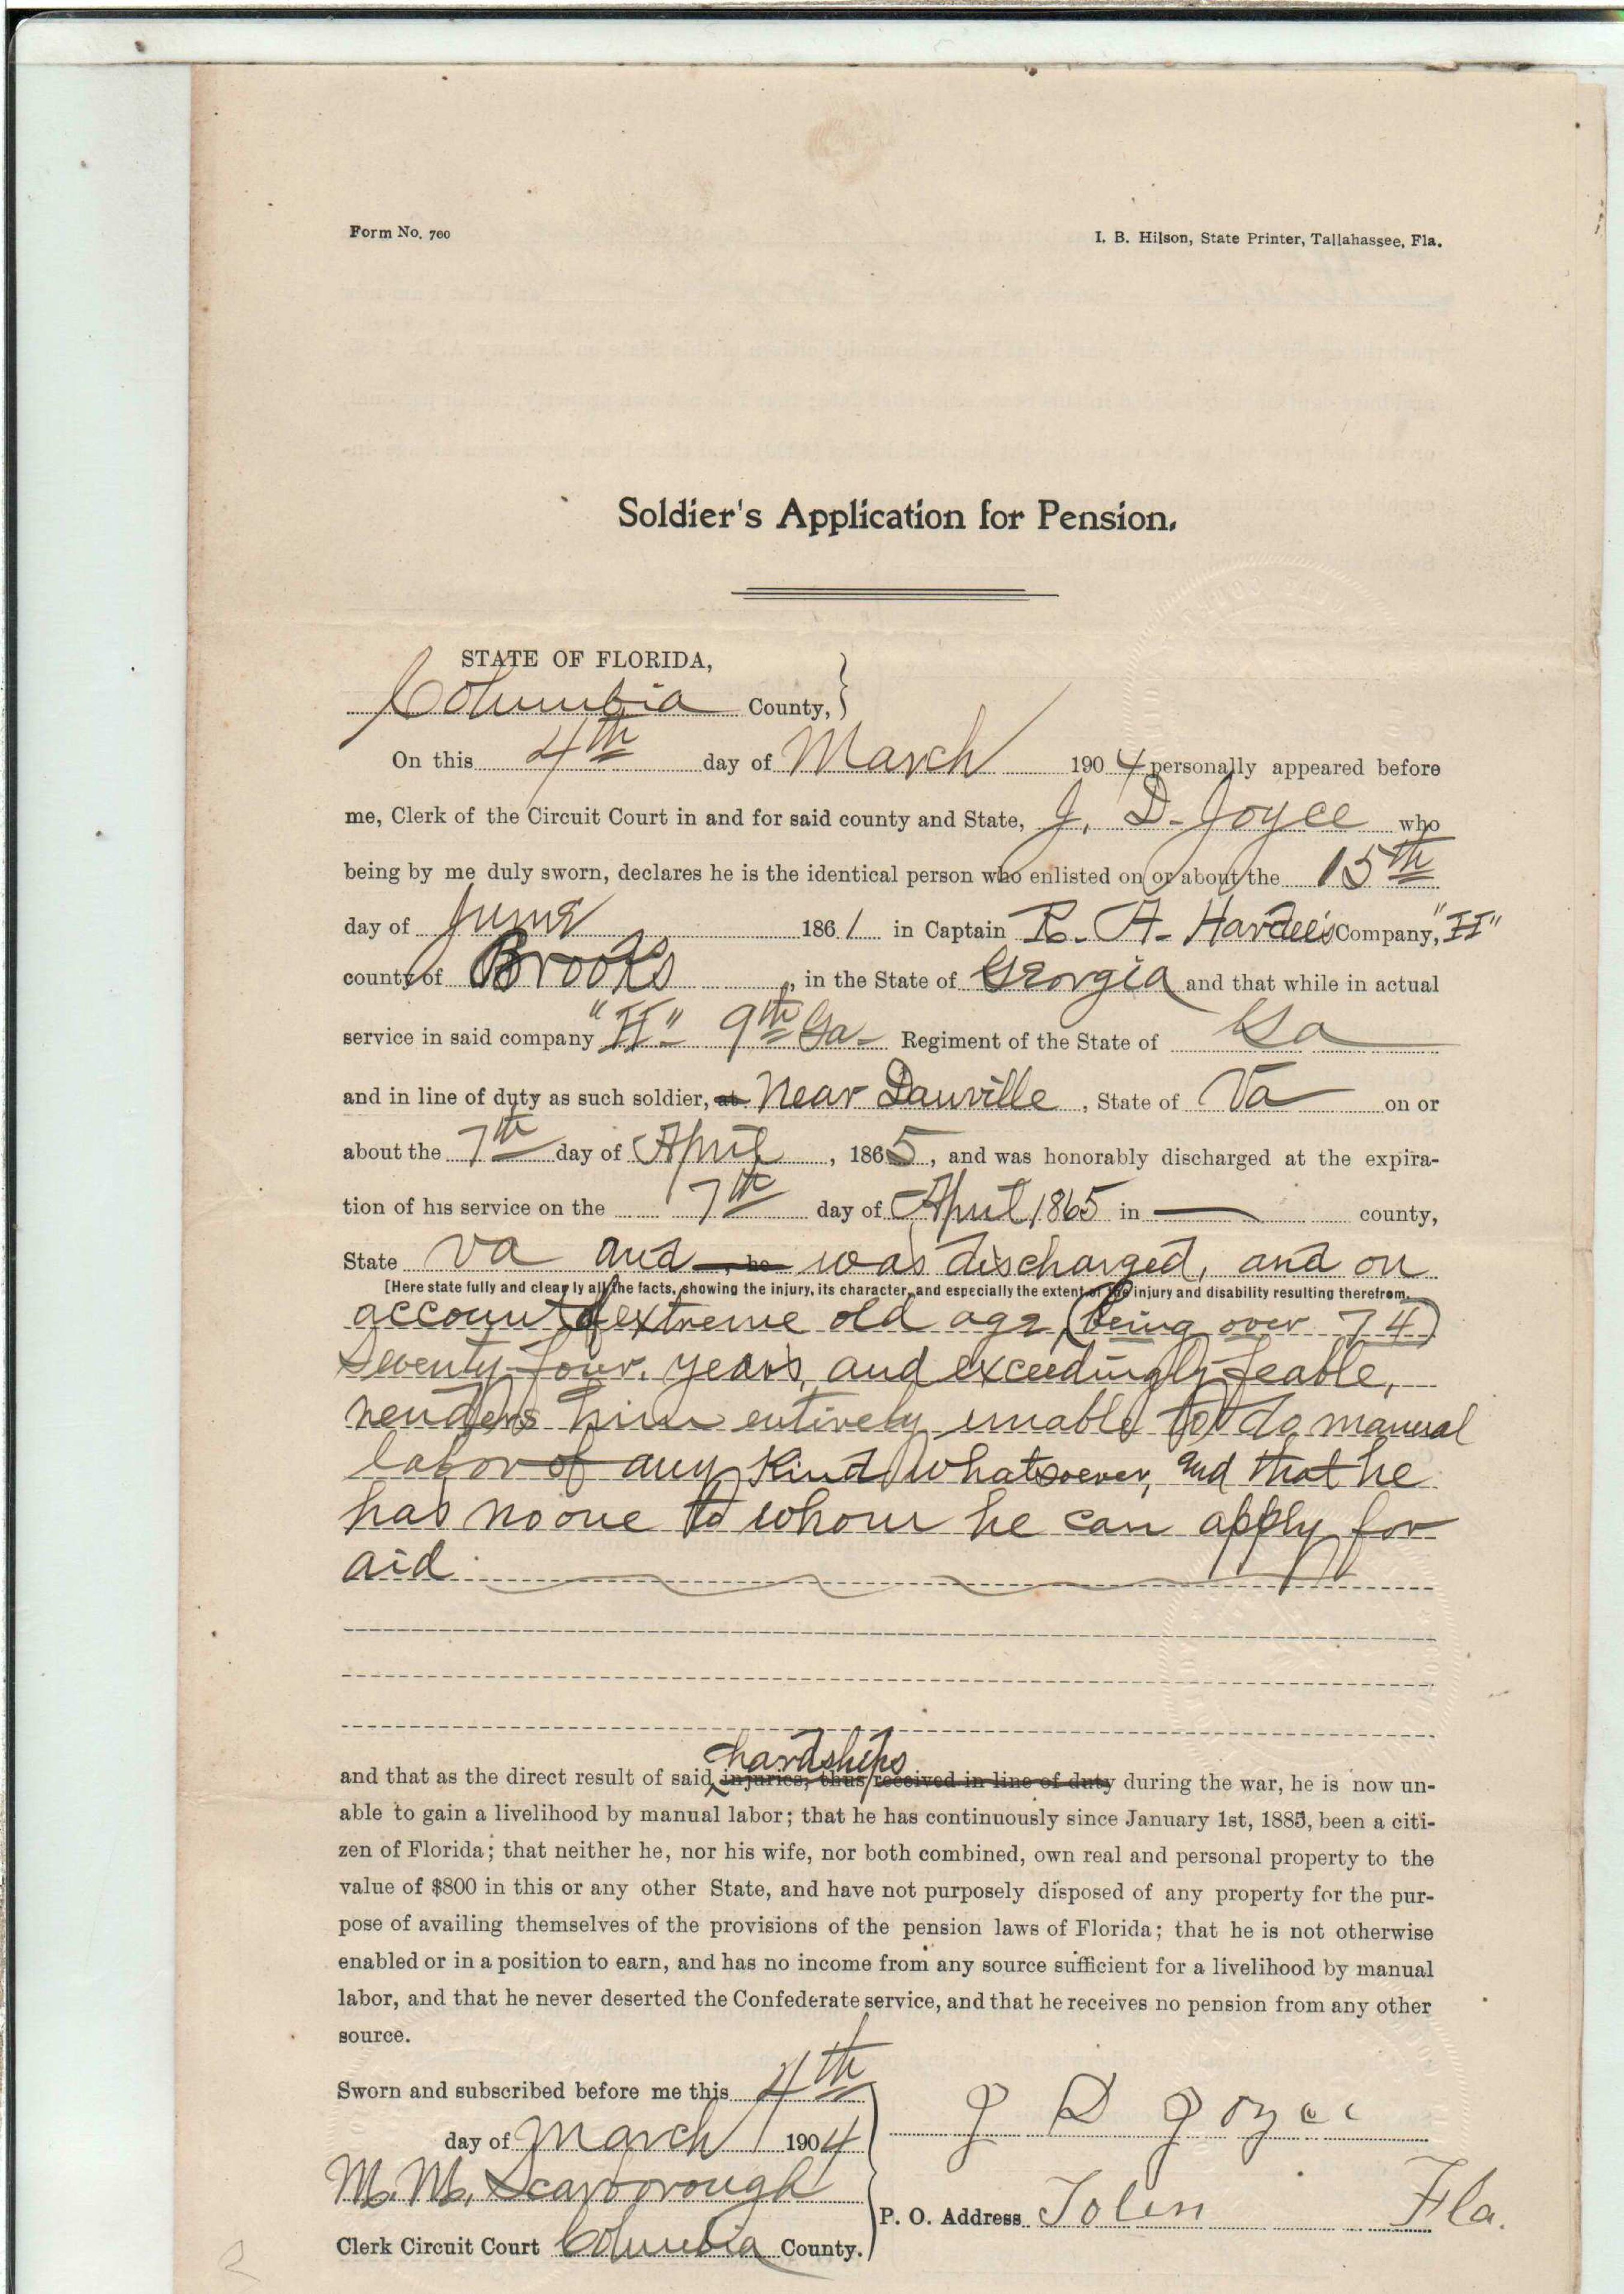 Form No. 760
I. B. Hilson, State Printer, Tallahassee, Fla.
Soldier's Application for Pension.
STATE OF FLORIDA,
Columbia County, }
On this 4th day of March 1904 personally appeared before
me, Clerk of the Circuit Court in and for said county and State, J. D. Joyce who
being by me duly sworn, declares he is the identical person who enlisted on or about the 15th
day of June 1861 in Captain R. A. Hardee's Company, "H"
county of Brooks, in the State of Georgia and that while in actual
service in said company "H" 9th Ga Regiment of the State of Ga
and in line of duty as such soldier, at Near Danville, State of Va on or
about the 7th day of April, 1865, and was honorably discharged at the expira-
tion of his service on the 7th day of April 1865 in county,
State Va and he was discharged, and on
[Here state fully and clearly all the facts, showing the injury, its character, and especially the extent of the injury and disability resulting therefrom.
account of extreme old age, (being over 74)
Seventy four. years, and exceedingly feable,
renders him entirely unable to do manual
labor of any kind whatsoever, and that he
has no one to whom he can apply for
aid.
hardships
and that as the direct result of said injuries, thus received in line of duty during the war, he is now un-
able to gain a livelihood by manual labor; that he has continuously since January 1st, 1885, been a citi-
zen of Florida; that neither he, nor his wife, nor both combined, own real and personal property to the
value of $800 in this or any other State, and have not purposely disposed of any property for the pur-
pose of availing themselves of the provisions of the pension laws of Florida; that he is not otherwise
enabled or in a position to earn, and has no income from any source sufficient for a livelihood by manual
labor, and that he never deserted the Confederate service, and that he receives no pension from any other
source.
Sworn and subscribed before me this 4th
day of March 1904
J D Joyce
M. M. Scarborough
P. O. Address Tolen Fla.
Clerk Circuit Court Columbia County.